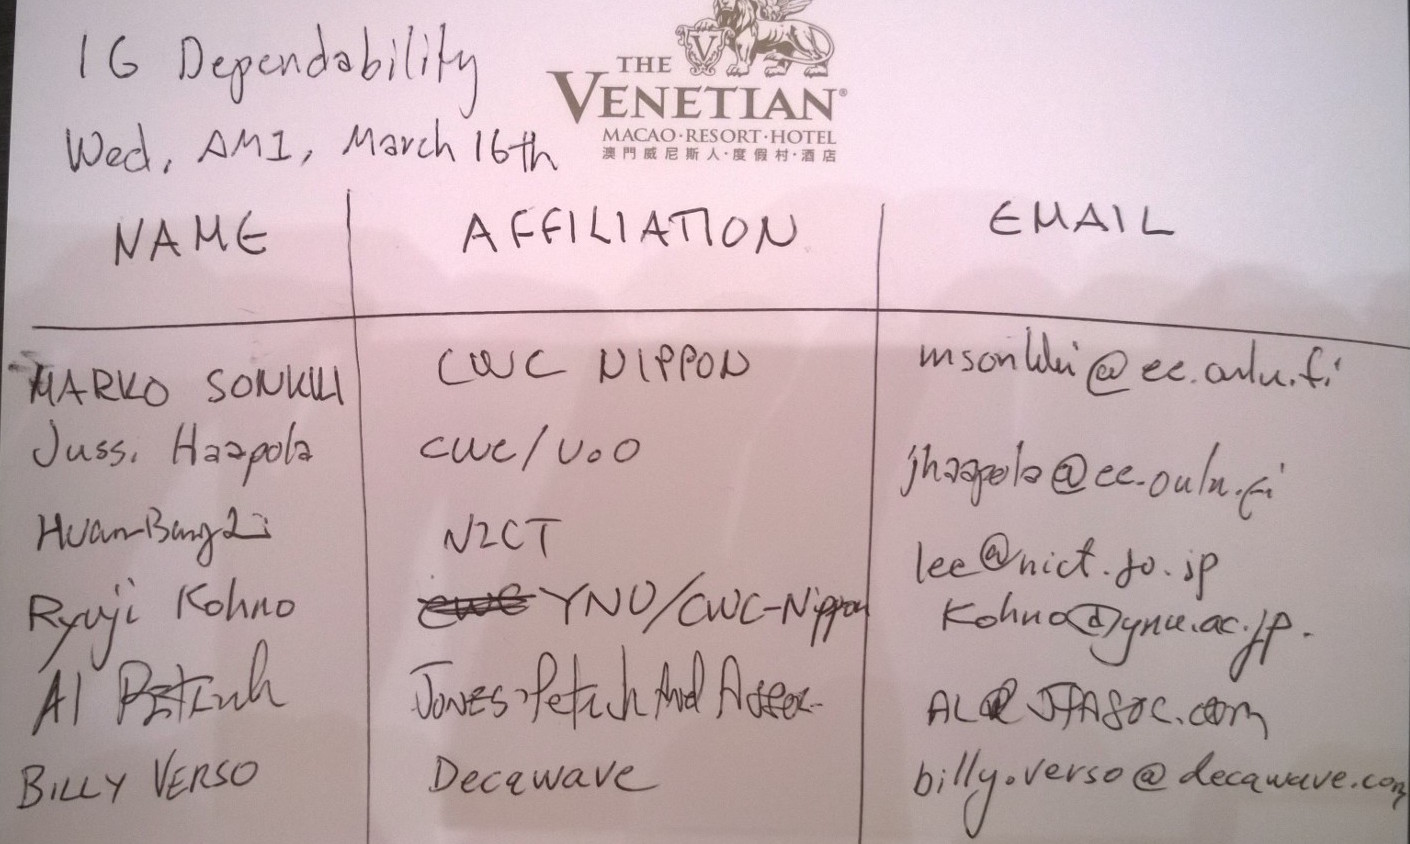 IG Dependability
THE
VENETIAN®
MACAO·RESORT·HOTEL
澳門威尼斯人·度假村·酒店
Wed, AM1, March 16th
NAME AFFILIATION EMAIL
MARKO SONKKI CWC NIPPON msonkki@ee.oulu.fi
Jussi Haapola CWC/UoO jhaapola@ee.oulu.fi
Huan-Bang Li NICT lee@nict.go.jp
Ryuji Kohno YNU/CWC-Nippon Kohno@ynu.ac.jp.
Al Petrick Jones-Petrick And Assoc. AL@JPASOC.com
BILLY VERSO Decawave billy.verso@decawave.com